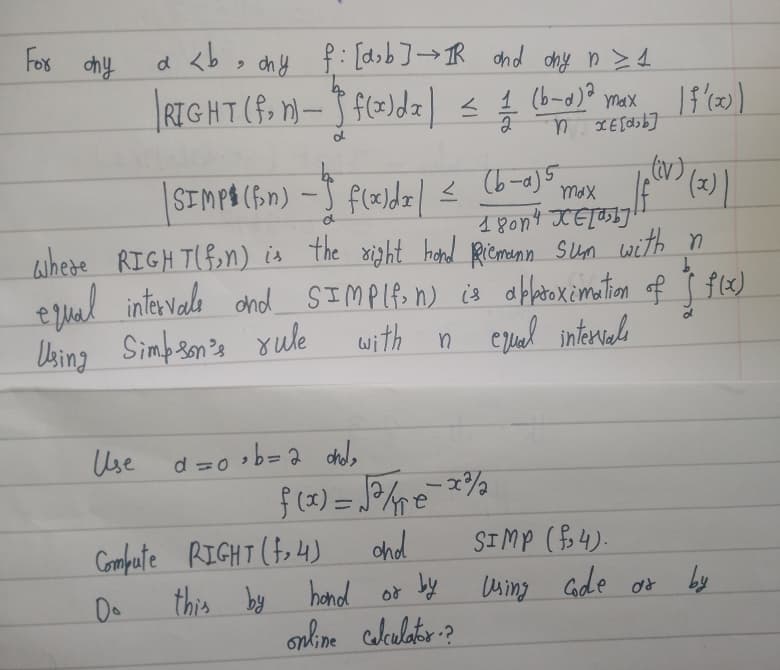 For any a < b, any f: [a,b] → ℝ and any n ≥ 1
|RIGHT(f,n) - ∫_a^b f(x)dx| ≤ 1/2 (b-a)²/n max_{x∈[a,b]} |f'(x)|
|SIMP(f,n) - ∫_a^b f(x)dx| ≤ (b-a)⁵/180n⁴ max_{x∈[a,b]} |f^(iv)(x)|
where RIGHT(f,n) is the right hand Riemann sum with n
equal intervals and SIMP(f,n) is approximation of ∫_a^b f(x)
Using Simpson's rule with n equal intervals
Use a=0, b=2 and,
f(x) = √2/π e^(-x²/2)
Compute RIGHT(f,4) and SIMP(f,4).
Do this by hand or by Using Code or by
online Calculator.?